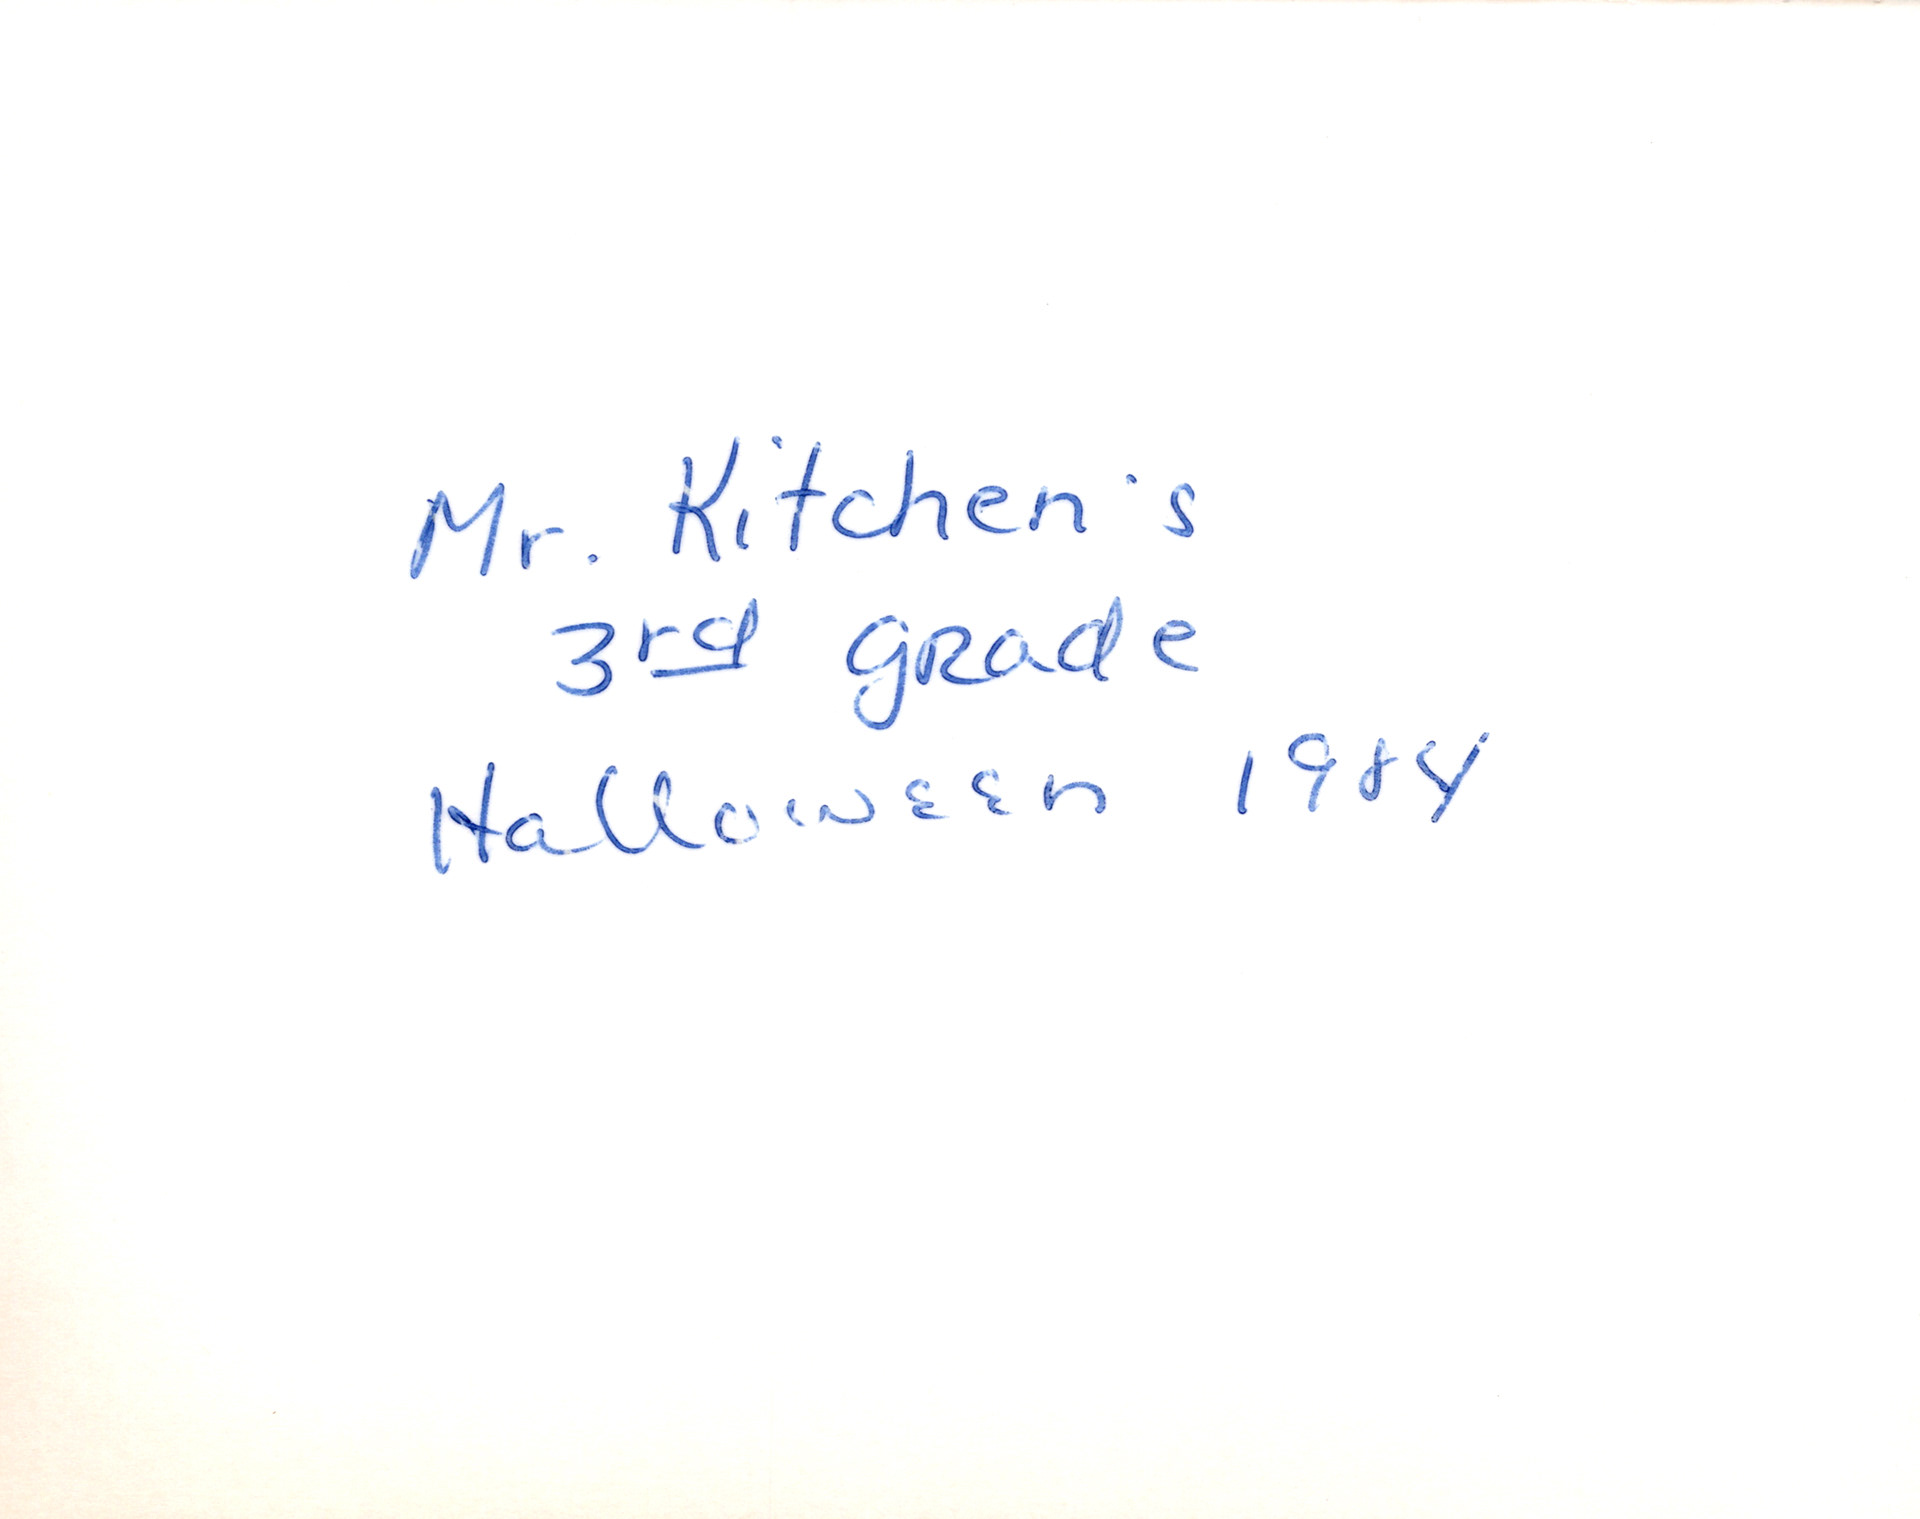 Mr. Kitchen's
3rd grade
Halloween 1984